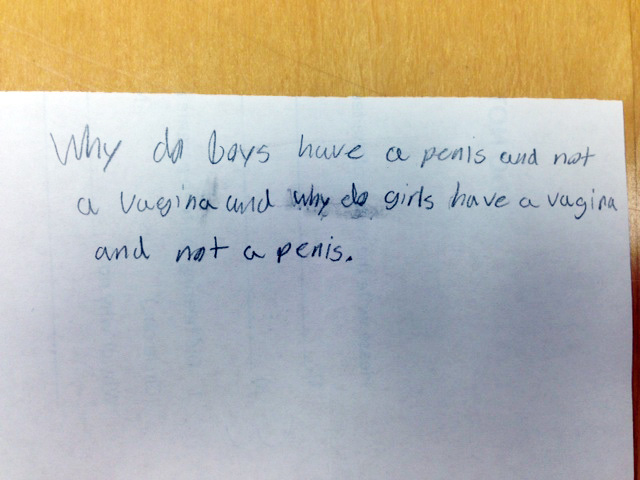 Why do boys have a penis and not
a vagina and why do girls have a vagina
and not a penis.